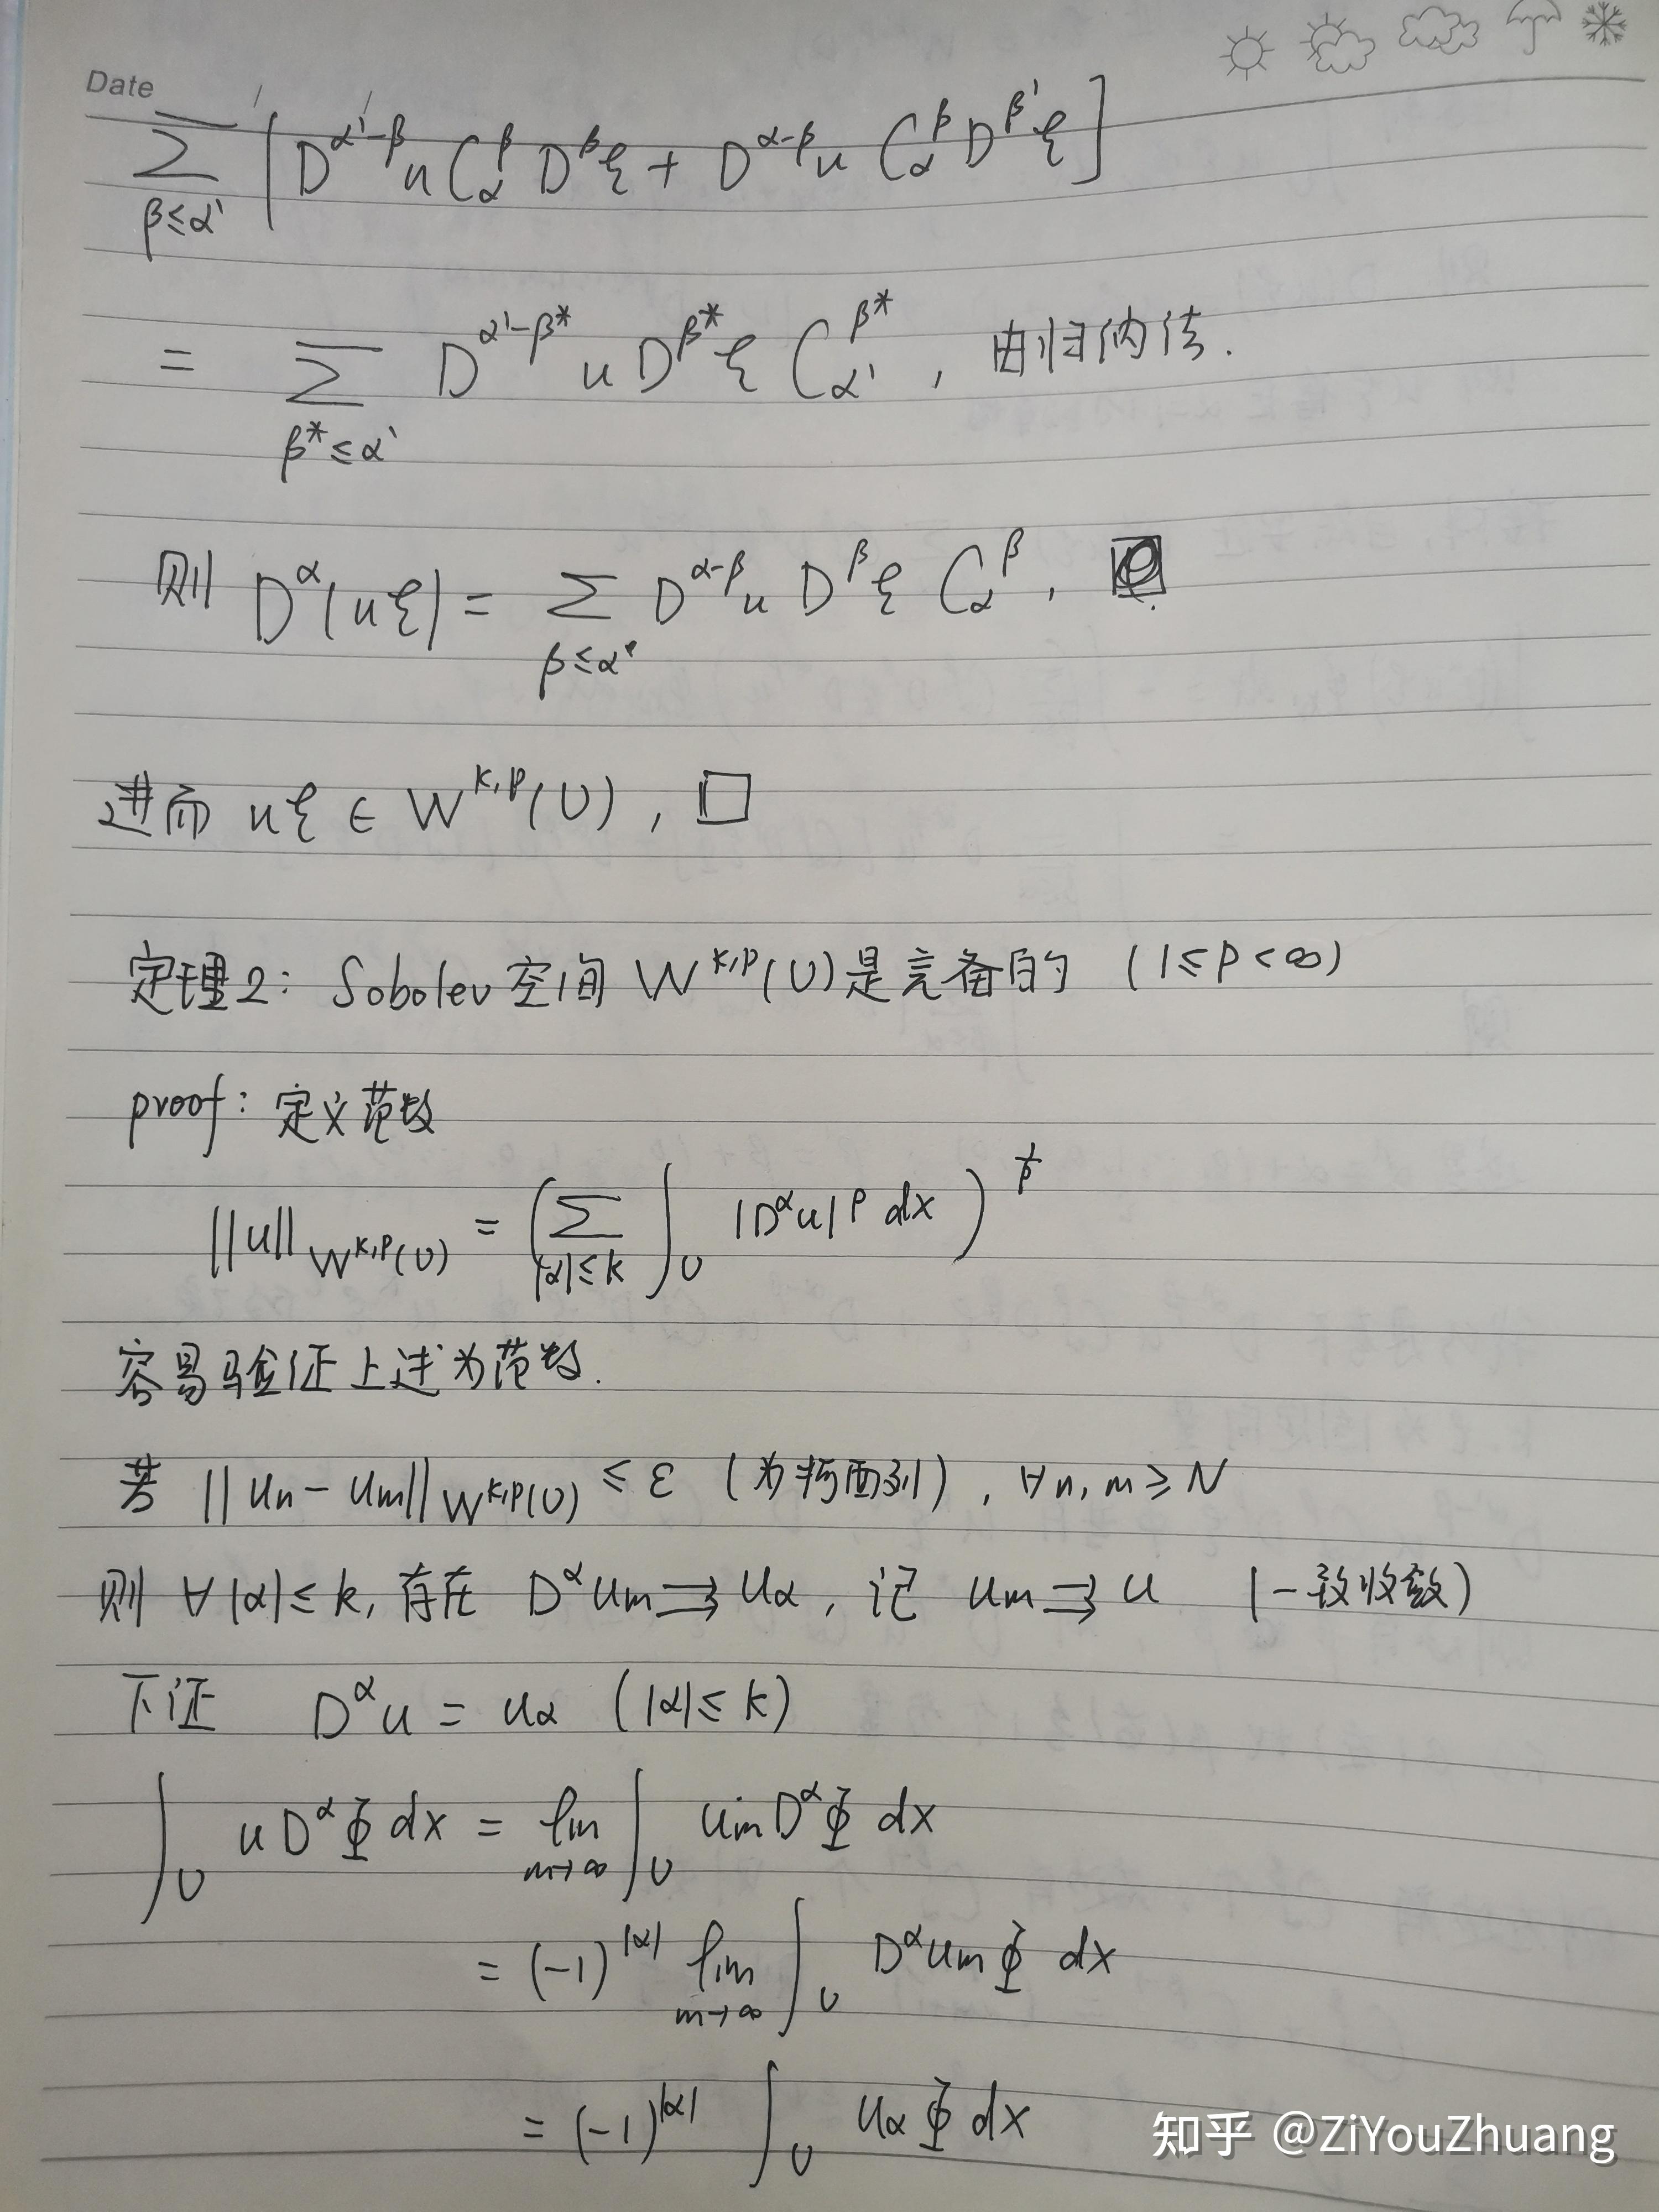 Date
∑_{β≤α'} [D^{α'-β}u C_α^β D^βξ + D^{α-β}u C_α^β D^{β'}ξ]
= ∑_{β*≤α'} D^{α'-β*}u D^{β*}ξ C_{α'}^{β*}, 由归纳法.
则 D^α(uξ) = ∑_{β≤α} D^{α-β}u D^βξ C_α^β,
进而 uξ ∈ W^{k,p}(U), □
定理2: Sobolev空间 W^{k,p}(U)是完备的 (1≤p<∞)
proof: 定义范数
||u||_{W^{k,p}(U)} = (∑_{|α|≤k} ∫_U |D^αu|^p dx)^{1/p}
容易验证上述为范数.
若 ||un - um||_{W^{k,p}(U)} ≤ ε (为柯西列), ∀n, m ≥ N
则 ∀|α|≤k, 存在 D^αum ⇉ uα, 记 um ⇉ u (一致收敛)
下证 D^αu = uα (|α|≤k)
∫_U u D^αΦ dx = lim_{m→∞} ∫_U um D^αΦ dx
= (-1)^{|α|} lim_{m→∞} ∫_U D^αum Φ dx
= (-1)^{|α|} ∫_U uα Φ dx
知乎 @ZiYouZhuang